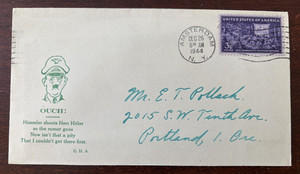 OUCH!
Himmler shoots Herr Hitler
as the rumor goes
Now isn't that a pity
That I couldn't get there first.
G. H. A.
AMSTERDAM
DEC 26
AM
1944
N. Y.
UNITED STATES OF AMERICA
Mr. E. T. Pollach
2015 S.W. Tenth Ave.
Portland 1. Ore.